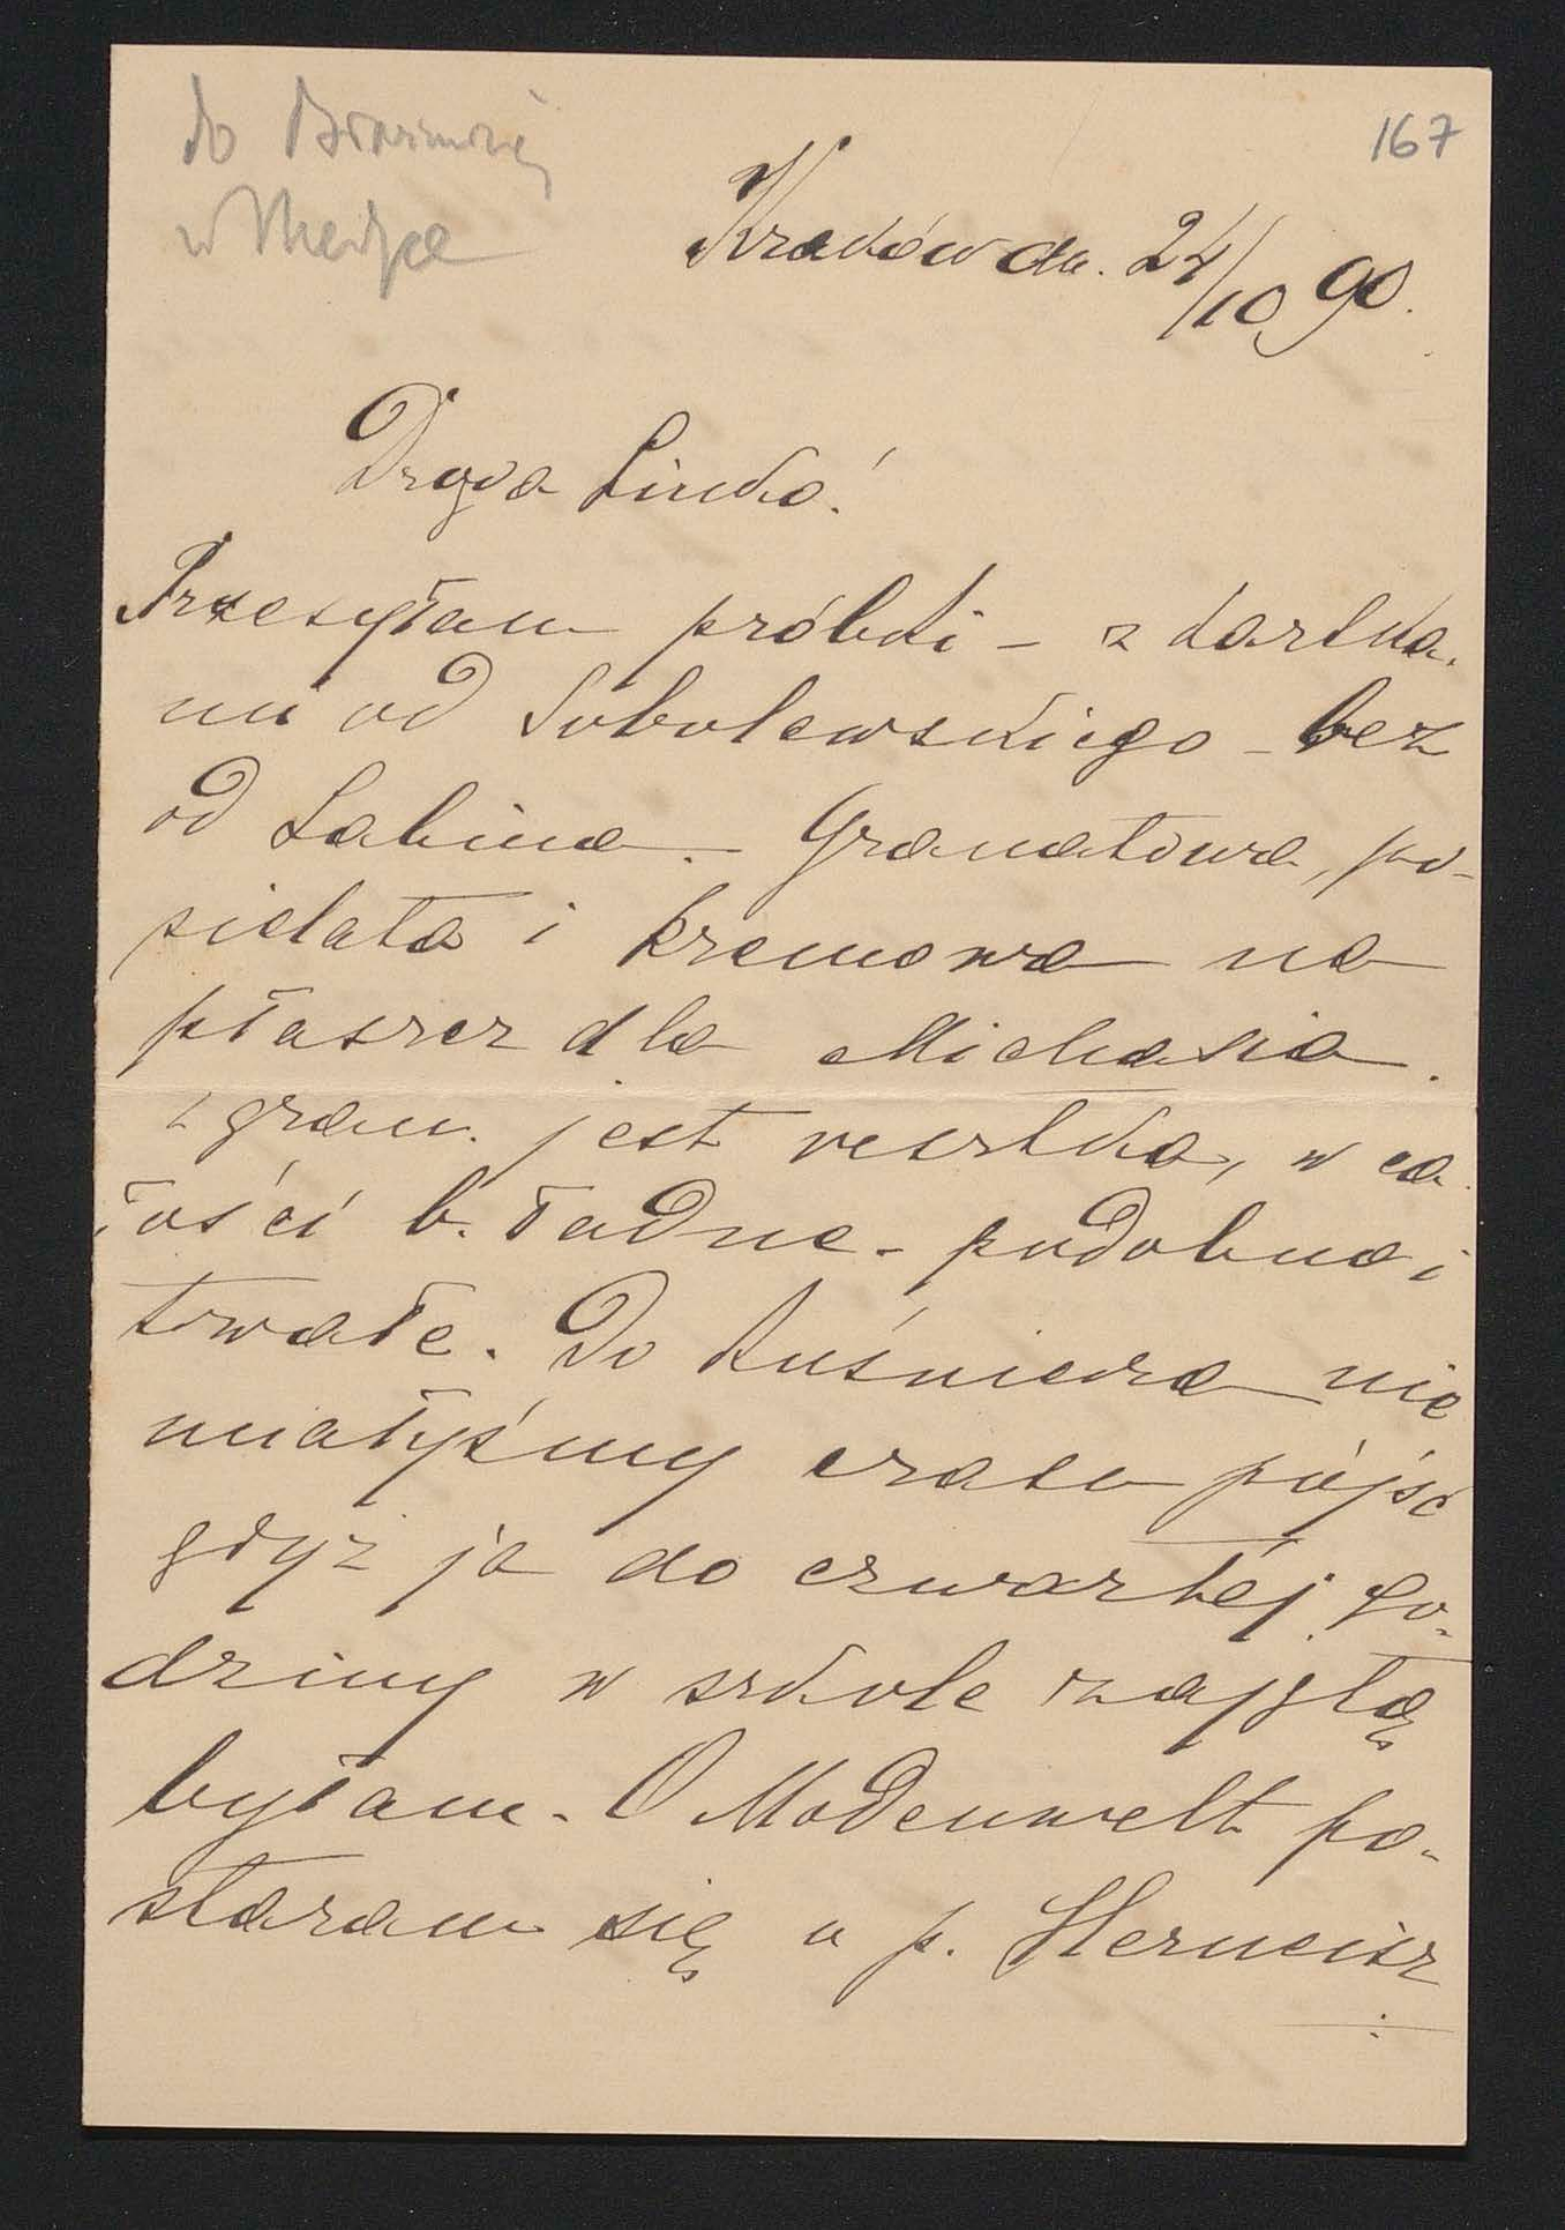 do
w
167
Kraków dn. 24/10 90.
Droga Linko!
Przesyłam próbki – z kartka-
mi od Sobolewskiego – bez
od Sabina. – Granatowa, po-
pielata i kremowa na
płaszcz dla Michasia.
z gran. jest resztka, w ca
łości b. ładne – podobno i
trwałe. Do Kuśnierza nie
miałyśmy czasu pójść
gdyż ja do czwartej go-
dziny w szkole zajętą
byłam. – O Modenwelt po-
staram się u p.